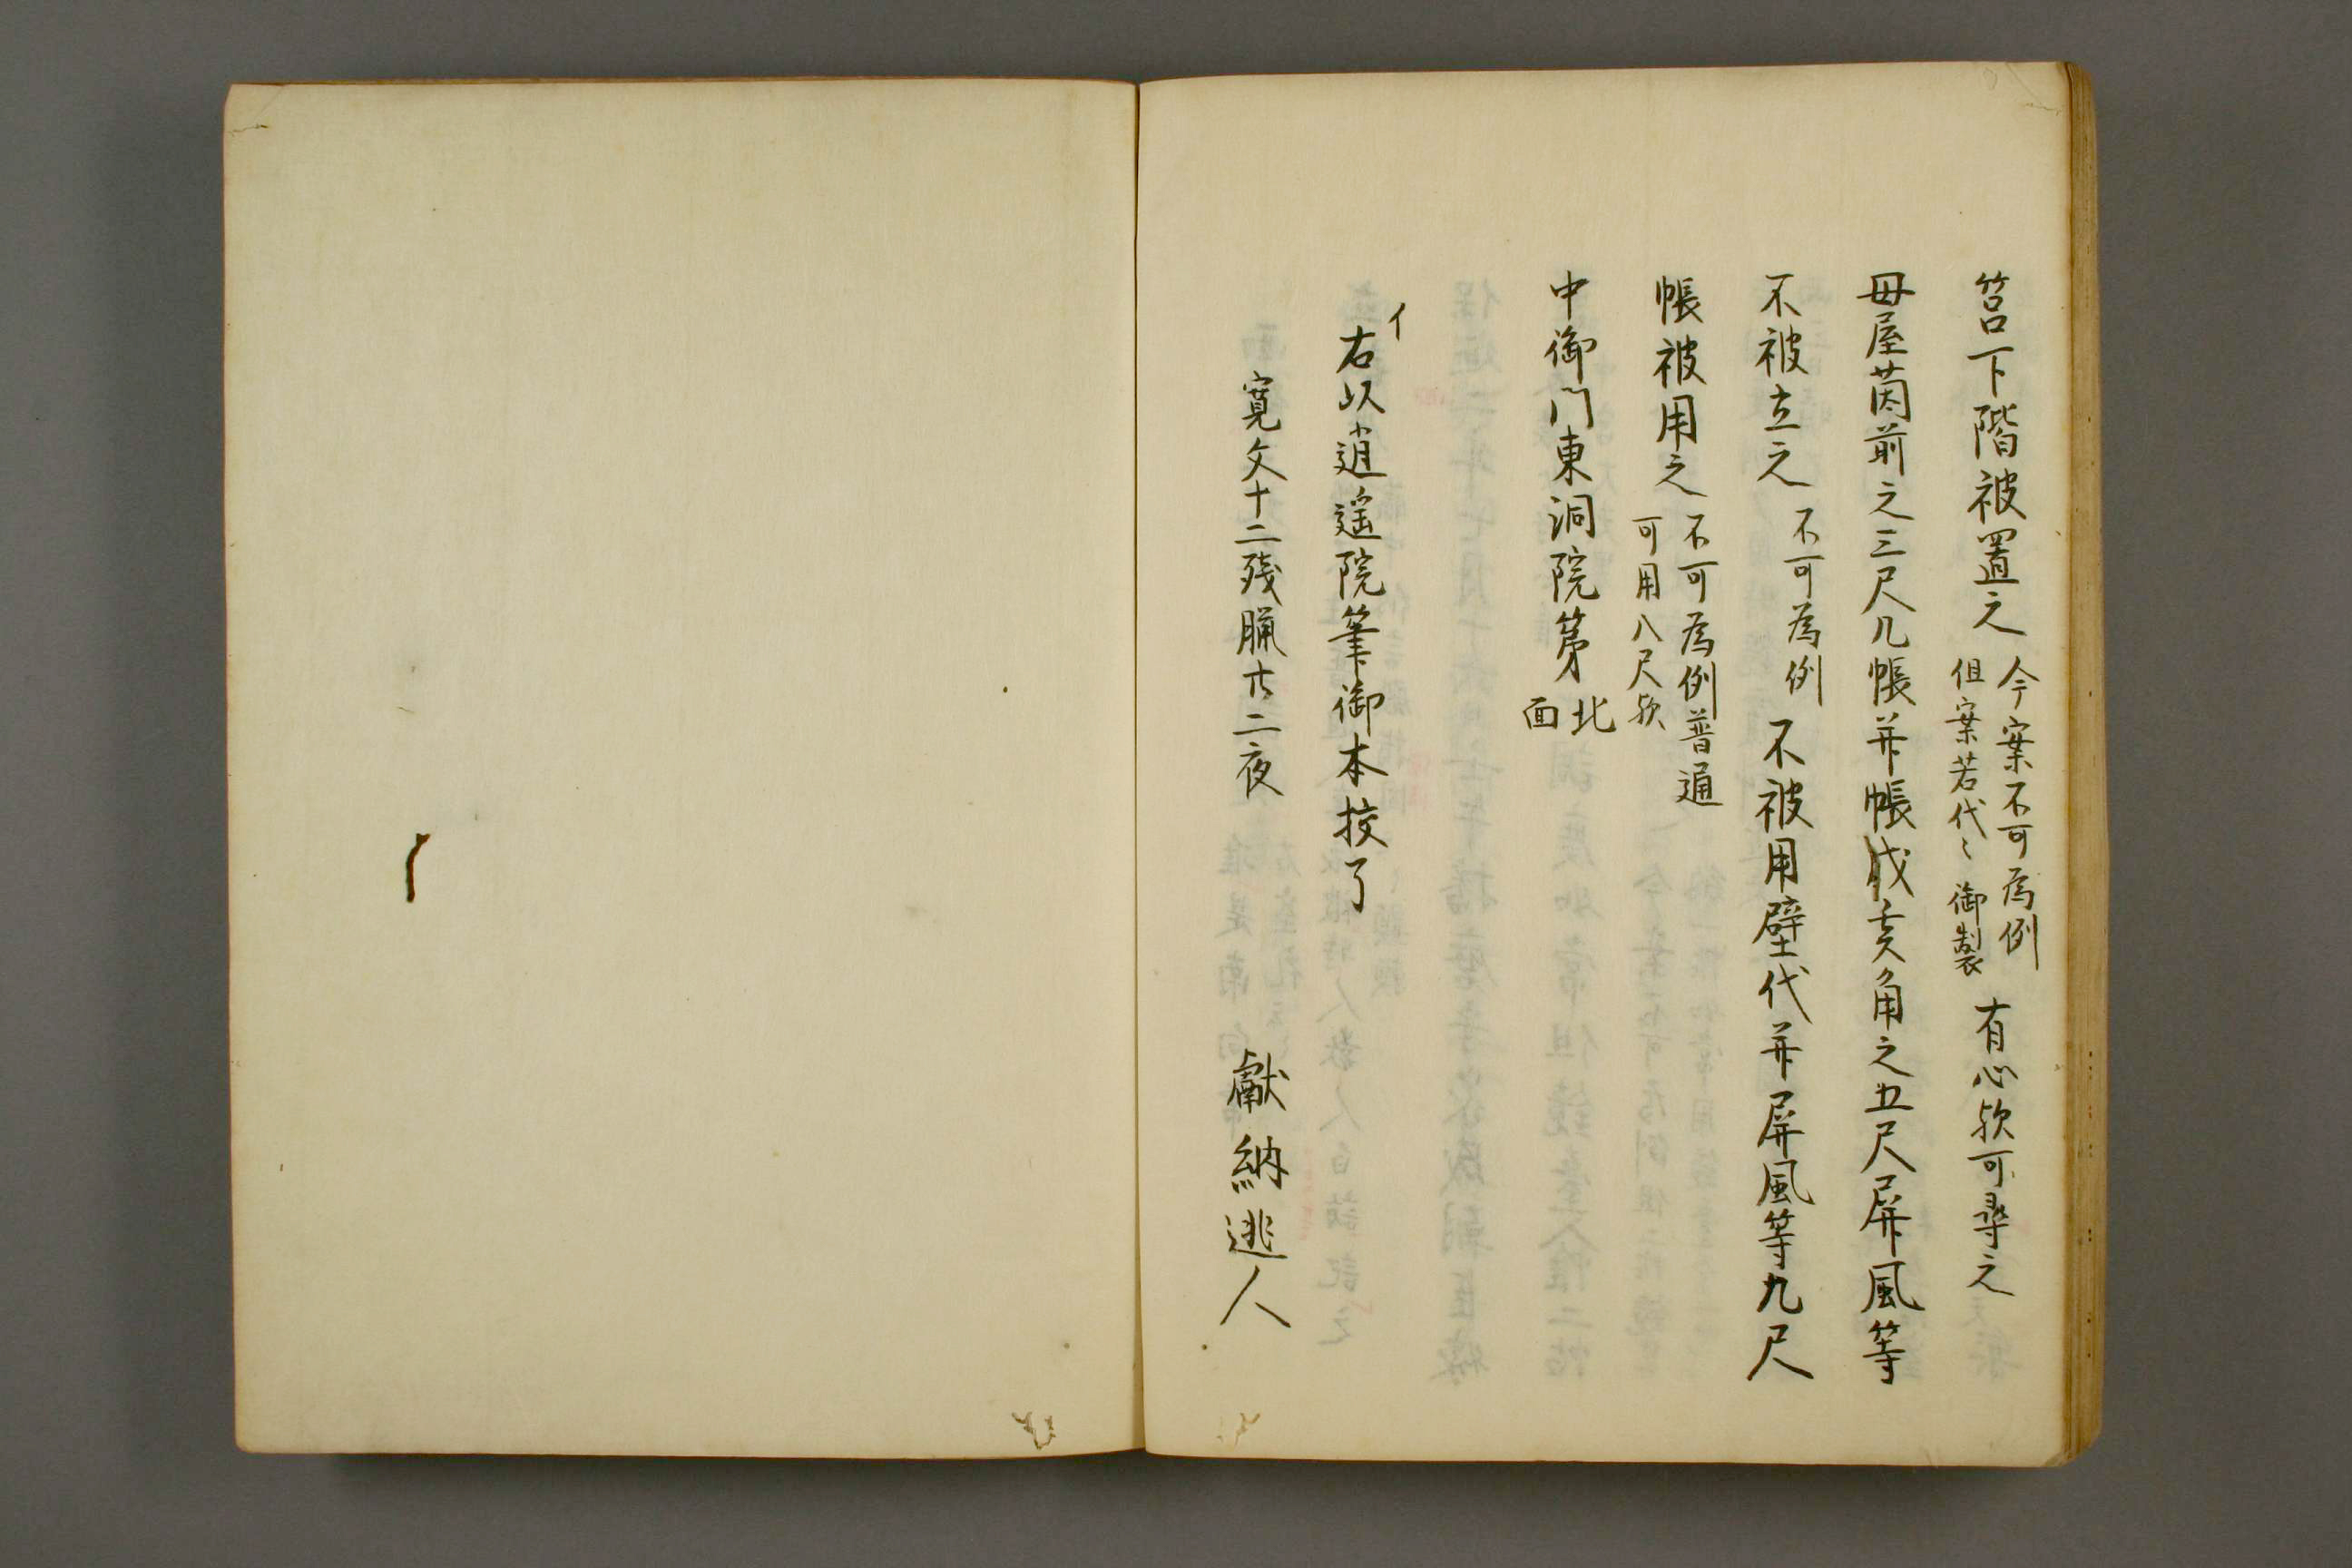 筥下階被置之 今案不可為例 但案若代〻御製 有心歟可尋之
母屋茵前之三尺几帳并帳戌亥角之五尺屏風等
不被立之 不可為例 不被用壁代并屏風等九尺
帳被用之 不可為例普通 可用八尺歟
中御門東洞院第 北面
イ
右以逍遥院筆御本挍了
寛文十二残臘廿二夜 獻納逃人